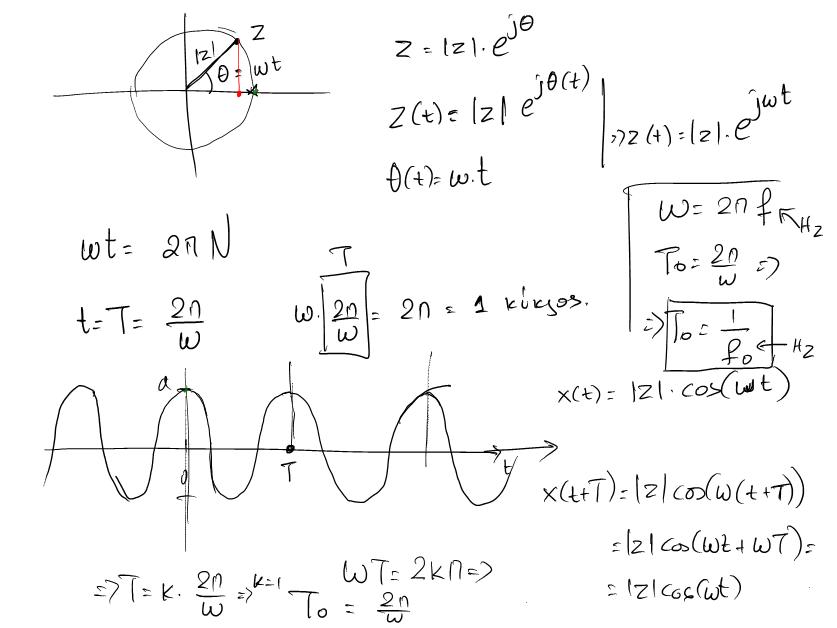 z
|z|
θ = ωt
z = |z|·e^{jθ}
z(t) = |z| e^{jθ(t)}
=> z(t) = |z|·e^{jωt}
θ(t) = ω·t
ω = 2π f ← Hz
T₀ = 2π/ω =>
=> T₀ = 1/f₀ ← Hz
ωt = 2π N
t = T = 2π/ω
T
ω· 2π/ω = 2π = 1 κύκλος.
a
0
T
t
x(t) = |z|·cos(ωt)
x(t+T) = |z| cos(ω(t+T))
= |z| cos(ωt + ωT) =
= |z| cos(ωt)
ωT = 2kπ =>
=> T = k· 2π/ω =>^{k=1} T₀ = 2π/ω